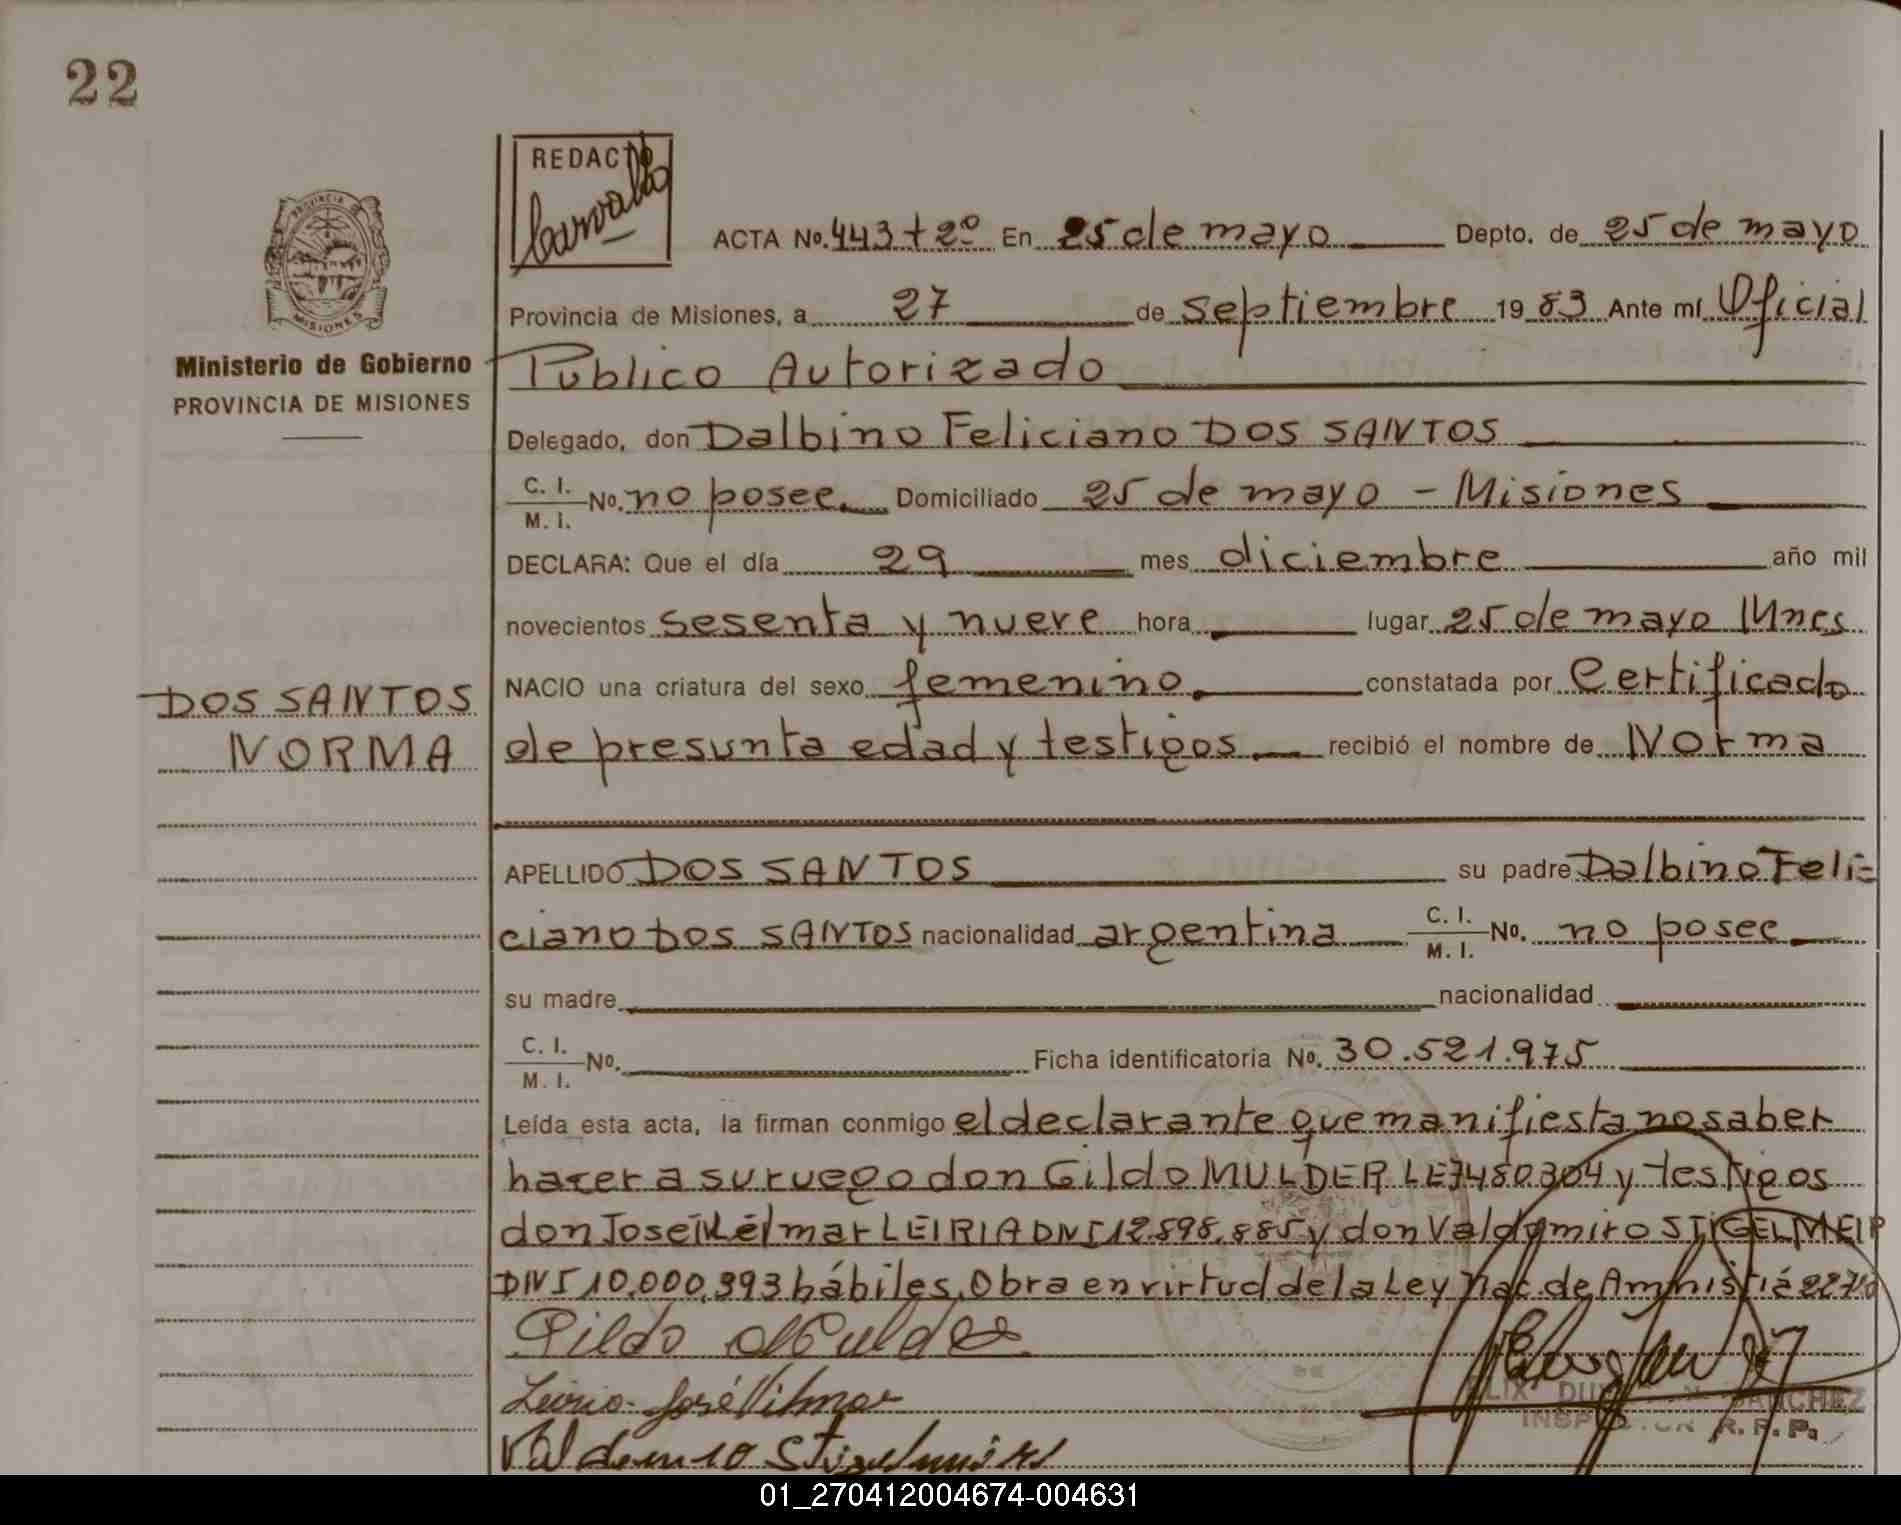 22
REDACTO
Carvallo
PROVINCIA DE
MISIONES
Ministerio de Gobierno
PROVINCIA DE MISIONES
ACTA No. 443 t 2º En 25 de mayo Depto. de 25 de mayo
Provincia de Misiones, a 27 de septiembre 19 83 Ante mí Oficial
Público Autorizado
Delegado, don Dalbino Feliciano DOS SANTOS
C. I.
M. I. No. no posee. Domiciliado 25 de mayo - Misiones
DECLARA: Que el día 29 mes diciembre año mil
novecientos sesenta y nueve hora lugar 25 de mayo Mnes
NACIO una criatura del sexo femenino. constatada por Certificado
de presunta edad y testigos. recibió el nombre de Norma
DOS SANTOS
NORMA
APELLIDO DOS SANTOS su padre Dalbino Feli=
ciano DOS SANTOS nacionalidad argentina C. I.
M. I. No. no posee
su madre nacionalidad
C. I.
M. I. No. Ficha identificatoria No. 30.521.975
Leída esta acta, la firman conmigo el declarante que manifiesta no saber
hacer a su ruego don Gildo MULDER LE 7480304 y testigos
don José Vilmar LEIRIA DNI 12.898.885 y don Valdomiro STIGELMEIR
DNI 10.000.393 hábiles. Obra en virtud de la Ley Nac. de Amnistía
Gildo Mulder
Leiria José Vilmar
Valdomiro
SANCHEZ
INSPECTOR R. P. P.
01_270412004674-004631